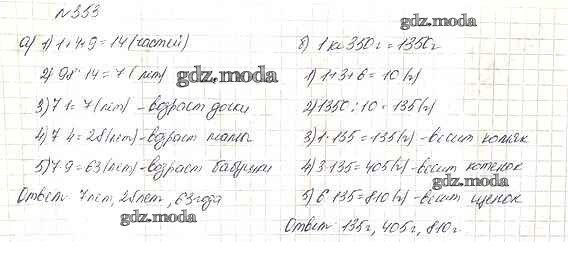 №353
а) 1) 1+4+9=14 (частей)
2) 98:14=7 (лет)
3) 7·1=7 (лет) - возраст дочки
4) 7·4=28 (лет) - возраст мамы
5) 7·9=63 (лет) - возраст бабушки
Ответ 7 лет, 28 лет, 63 года
gdz.moda
gdz.moda
б) 1 кг 350 г = 1350 г
1) 1+3+6=10 (ч)
2) 1350:10=135 (г)
3) 1·135=135 (г) - весит
4) 3·135=405 (г) - весит котенок
5) 6·135=810 (г) - весит щенок
Ответ 135 г, 405 г, 810 г
gdz.moda
gdz.moda